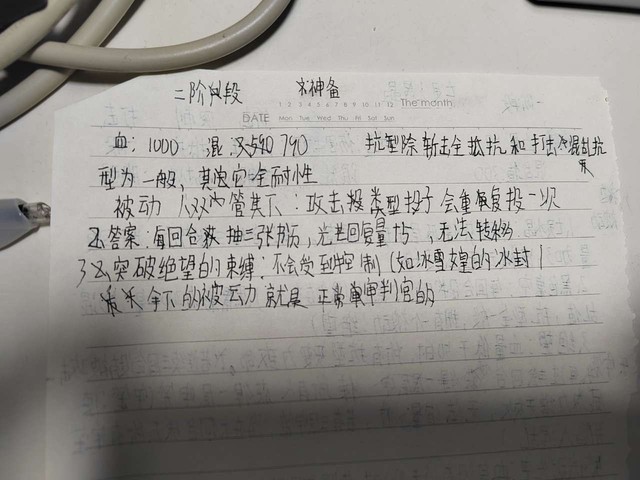 二阶段
1 2 3 4 5 6 7 8 9 10 11 12 The month
DATE Mon Tue Wed Thu Fri Sat Sun
血：1000 混 590 790 抗型除斩击全抵抗和打击混乱抗
型为一般，其它全耐性
被动 1.双管其下：攻击投类型投子会重复投一次
2.答案：每回合 抽三张 光芒回复量 ，无法转移
3.突破绝望的束缚：不会受到控制（如冰雪女皇的冰封）
下的被动就是正常审判官的